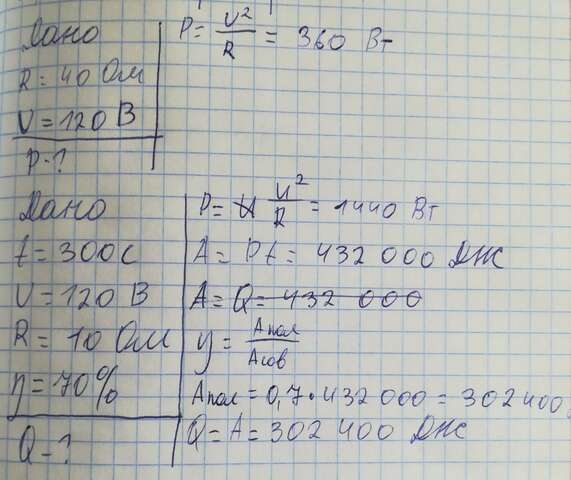 Дано
R = 40 Ом
U = 120 В
P - ?
P = U²/R = 360 Вт
Дано
t = 300с
U = 120 В
R = 10 Ом
η = 70%
Q - ?
P = U²/R = 1440 Вт
A = Pt = 432 000 Дж
A = Q = 432 000
η = Aпол/Aсов
Aпол = 0,7 • 432 000 = 302 400
Q = A = 302 400 Дж